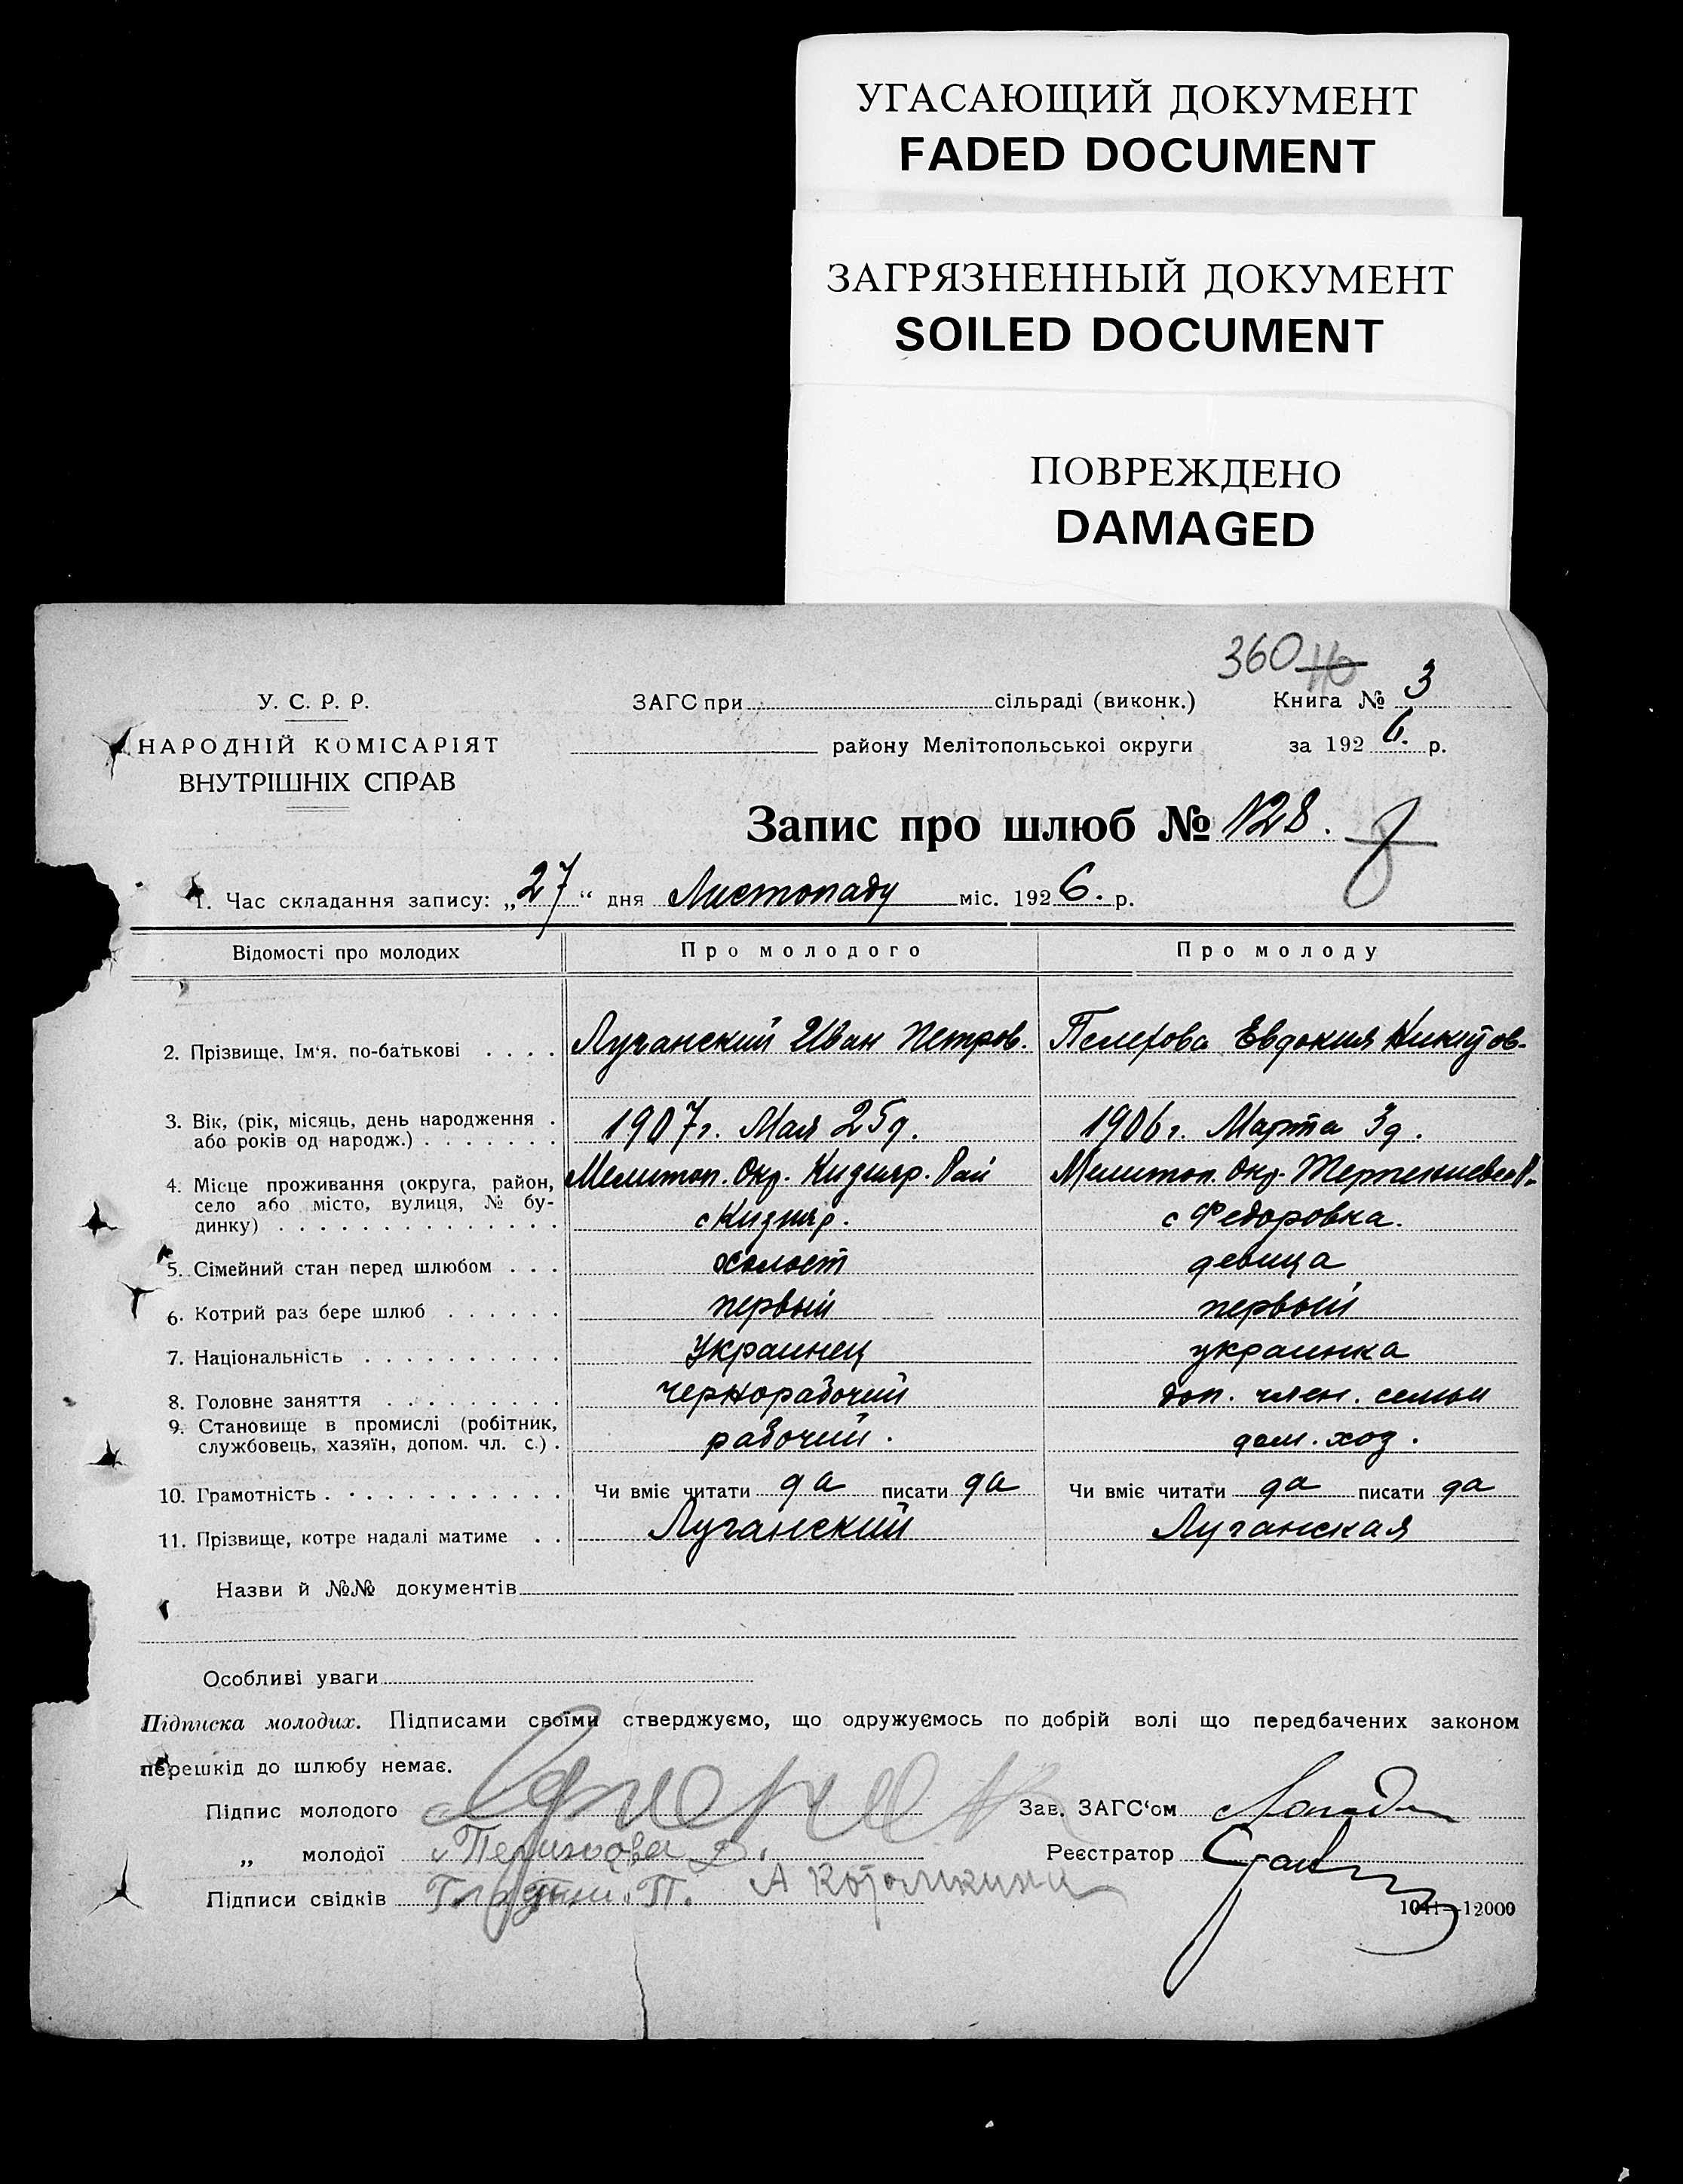 УГАСАЮЩИЙ ДОКУМЕНТ
FADED DOCUMENT
ЗАГРЯЗНЕННЫЙ ДОКУМЕНТ
SOILED DOCUMENT
ПОВРЕЖДЕНО
DAMAGED
360
У. С. Р. Р. ЗАГС при сільраді (виконк.) Книга № 3
НАРОДНІЙ КОМІСАРІЯТ району Мелітопольської округи за 1926. р.
ВНУТРІШНІХ СПРАВ
Запис про шлюб № 128.
1. Час складання запису: „27“ дня Листопаду міс. 1926. р.
Відомості про молодих Про молодого Про молоду
2. Прізвище, Ім‘я, по-батькові . . . . Луганский Иван Петров. Евдокия
3. Вік, (рік, місяць, день народження . 1907 г. Мая 25 д. 1906 г. Марта 3 д.
або років од народж.) . . . . . . .
4. Місце проживання (округа, район, Мелитоп. Окр. Кизияр. Рай Мелитоп. Окр.
село або місто, вулиця, № бу- с Кизияр. с Федоровка.
динку) . . . . . . . . . . . . . .
5. Сімейний стан перед шлюбом . . . холост девица
6. Котрий раз бере шлюб . . . . . . первый первый
7. Національність . . . . . . . . . . Украинец украинка
8. Головне заняття . . . . . . . . . чернорабочий доп. член. семьи
9. Становище в промислі (робітник, рабочий. дом. хоз.
службовець, хазяїн, допом. чл. с.) .
10. Грамотність . . . . . . . . . . . . Чи вміє читати да писати да Чи вміє читати да писати да
11. Прізвище, котре надалі матиме . . Луганский Луганская
Назви й №№ документів
Особливі уваги
Підписка молодих. Підписами своїми стверджуємо, що одружуємось по добрій волі що передбачених законом
перешкід до шлюбу немає.
Підпис молодого Зав. ЗАГС‘ом
„ молодої Реєстратор
Підписи свідків
1041—12000